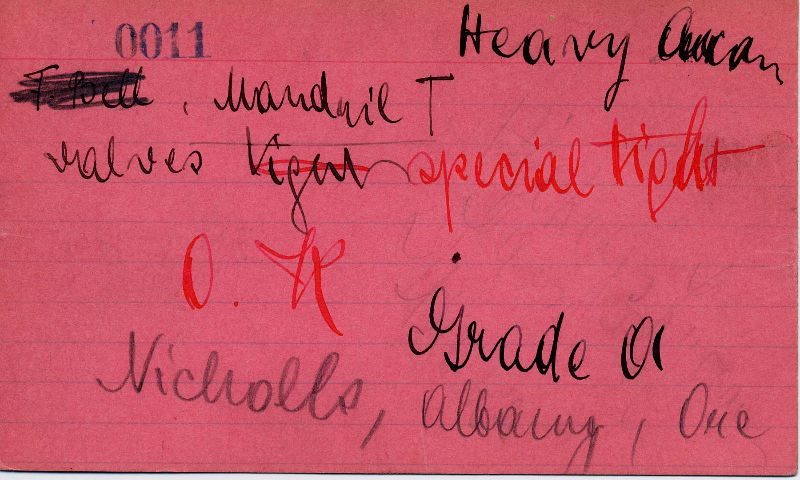 0011
Heavy
T. Bell, Mandril T
valves tight special tight
O. K
Grade A
Nicholls, Albany, Ore